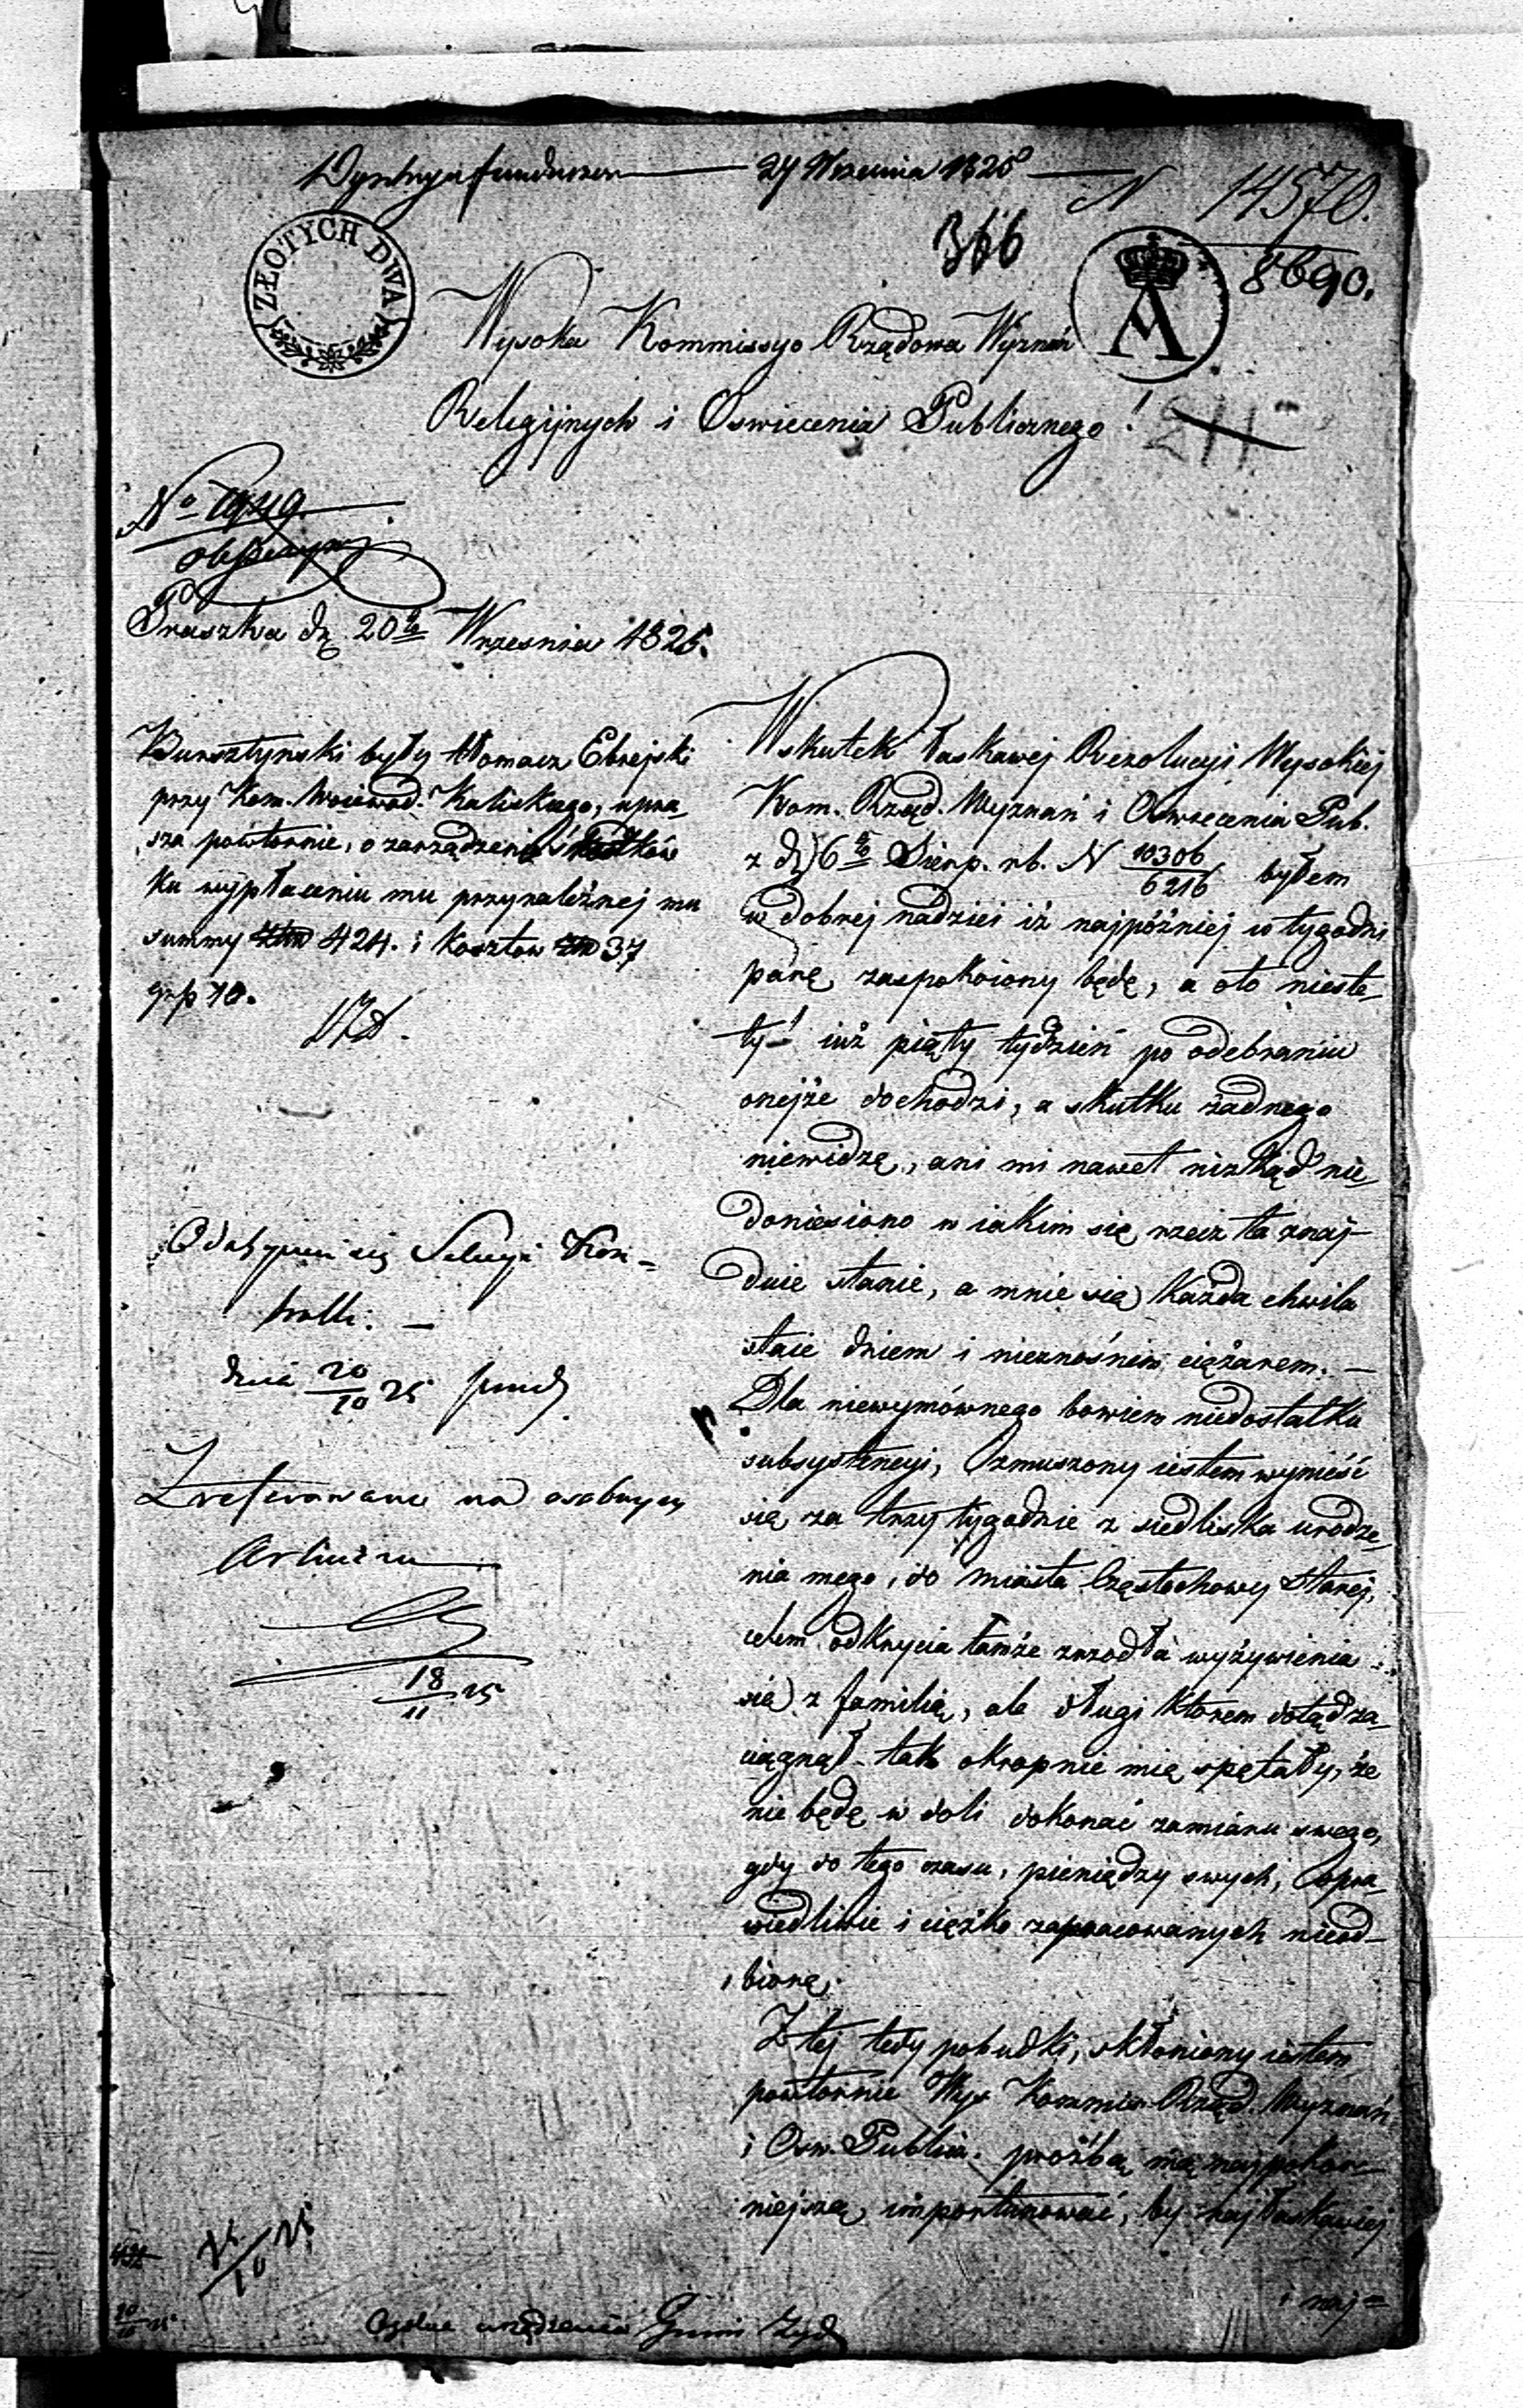 27 Września 1825
N 14570.
8690.
366
ZŁOTYCH DWA
A
Wysoka Kommissyo Rządowa Wyznań
Religijnych i Oswiecenia Publicznego!
Praszka dź. 20go Wrzesnia 1825.
Bursztynski były tłomacz Ebrejski
przy Kom. Woiewod. Kaliskiego, upra-
sza powtornie, o zarządzenie środków
ku wypłaceniu mu przynależnej mu
summy 424. i kosztow 37
grp 10.
Wskutek łaskawej Rezolucyi Wysokiej
Kom. Rząd. Wyznań i Oswiecenia Pub.
z d. 6go Sierp. rb. N 10306/6216 byłem
w dobrej nadziei iż najpóźniej w tygodni
parę zaspokoiony będę, a oto nieste-
ty! iuż piąty tydzień po odebraniu
onejże dochodzi, a skutku żadnego
niewidzę, ani mi nawet nizkąd nie-
doniesiono w iakim się rzecz ta znaj-
duie stanie, a mnie się każda chwila
staie dniem i nieznośnim ciężarem. —
Dla niewymównego bowiem niedostatku
subsystencyi, zmuszony iestem wynieść
się za trzy tygodnie z siedliska urodze-
nia mego, do miasta Częstochowy Starej,
celem odkrycia tamże zrzodła wyżywienia
się z familią, ale długi ktorem dotąd za-
ciągnął tak okropnie mię spętały, że
nie będę w doli dokonać zamiaru swego,
gdy do tego czasu, pieniędzy swych, spra-
wiedliwie i ciężko zapracowanych nieod-
biorę.
Z tej tedy pobudki, skłoniony iestem
powtornie Wys. Kommis. Rząd. Wyznań
i Osw. Public. prożbą mą najpokor-
niejszą importunować, by najłaskawiej
i naj=
Kon-
trolli. —
dnia 20/10 25
na osobnym
18/11 25
10 25